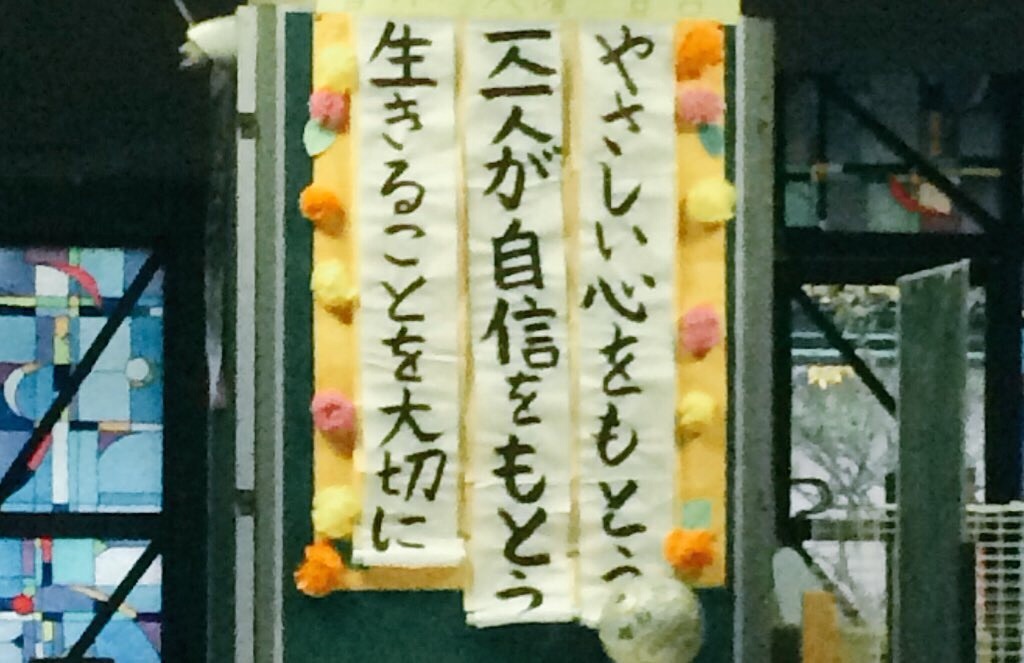 やさしい心をもとう
一人一人が自信をもとう
生きることを大切に